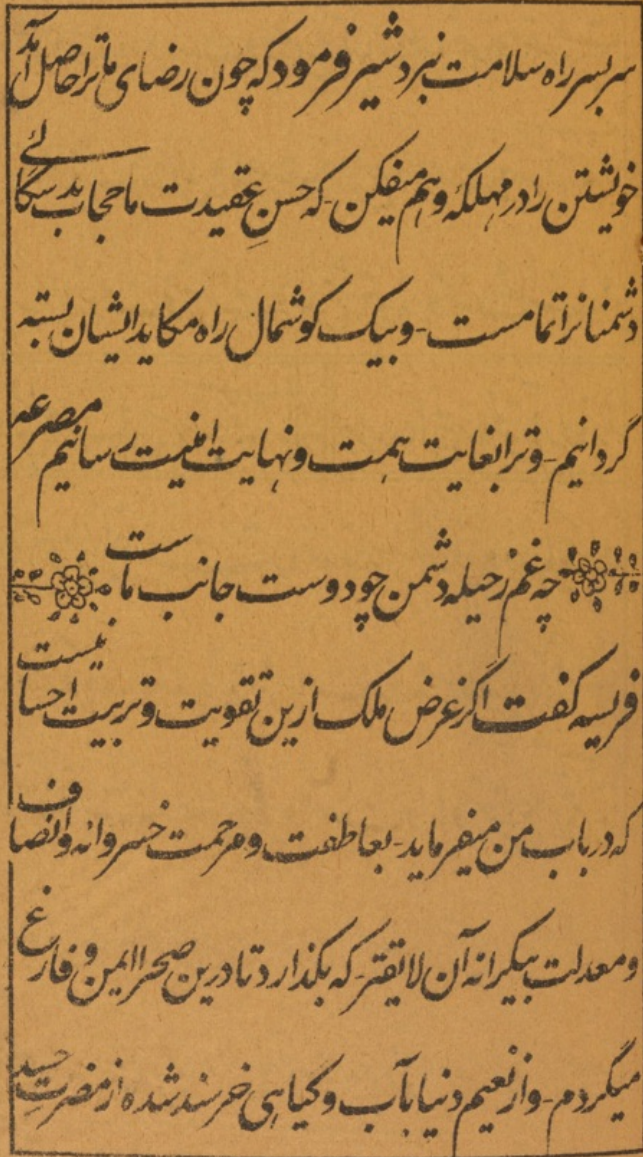 سربسر راه سلامت نبرد شیر فرمود که چون رضای ما ترا حاصل آمد
خویشتن را در مهلکهٔ وهم میفکن - که حسنِ عقیدت ما حجاب بدسگالئے
دشمنانرا تمامست - و بیک گوشمال راه مکاید ایشان بسته
گردانیم - و ترا بغایت همت و نهایت امنیت رسانیم مصرعه
چه غم ز حیله دشمن چو دوست جانب ماست
فریسه گفت اگر غرض ملک ازین تقویت و تربیت احسانیست
که در باب من میفرماید - بعاطفت و مرحمت خسروانه و انصاف
و معدلت بیکرانه آن لایقتر که بگذارد تا درین صحرا ایمن و فارغ
میگردم - و از نعیم دنیا بآب و گیاهی خرسند شده از مضرتِ حسد